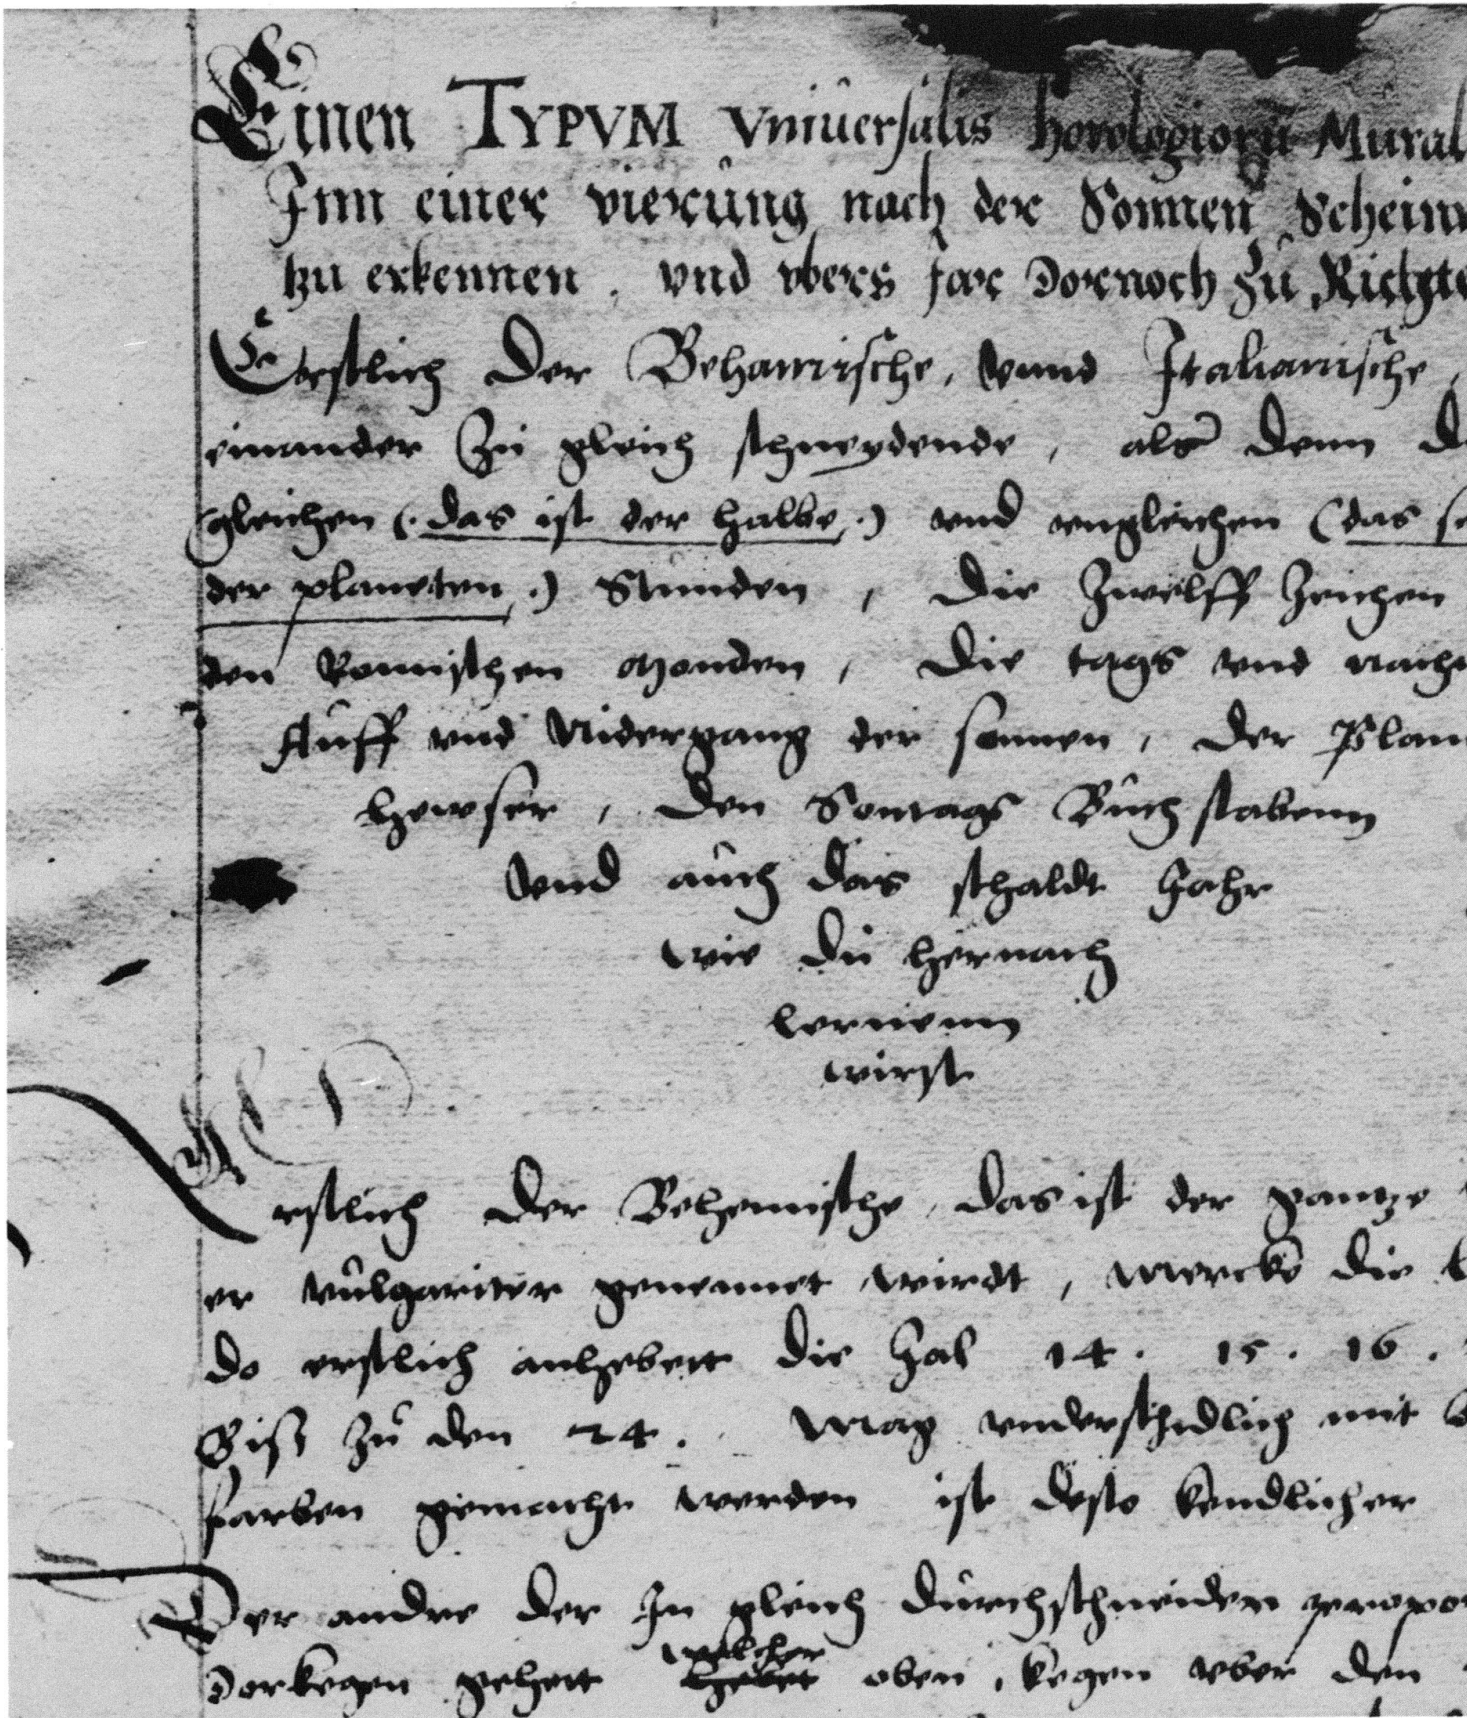 Einen TYPVM Vniuersalis horologiorū Mural
Inn einer vierung nach der Sonnen Schein
zu erkennen, vnd vbers jar dornoch Zu Richte
Erstlich der Behamische, vnnd Italianische,
einander Zu gleich schneydende, als denn
gleichen (. das ist der halbe .) vnd vngleichen (das
der planeten .) Stunden, die Zwelff Zeichen
den Romischen Monden, die tags vnd nach
Auff vnd Nidergang der sonnen, der Plan
hewser, den Sontags Buchstabenn
Vnd auch das schaldt Jahr
wie du hernach
lernenn
wirst
Erstlich der Behemische, das ist der gantze
er vulgariter genennet wirdt, mercke die
do erstlich anhebett die Zal 14. 15. 16.
Biß Zu den 24. mag vnderschidlich mit
farben gemacht werden ist desto kendlicher
Der andre der In gleich durchschneiden
welcher
Dorkegen gehett oben, kegen vber den